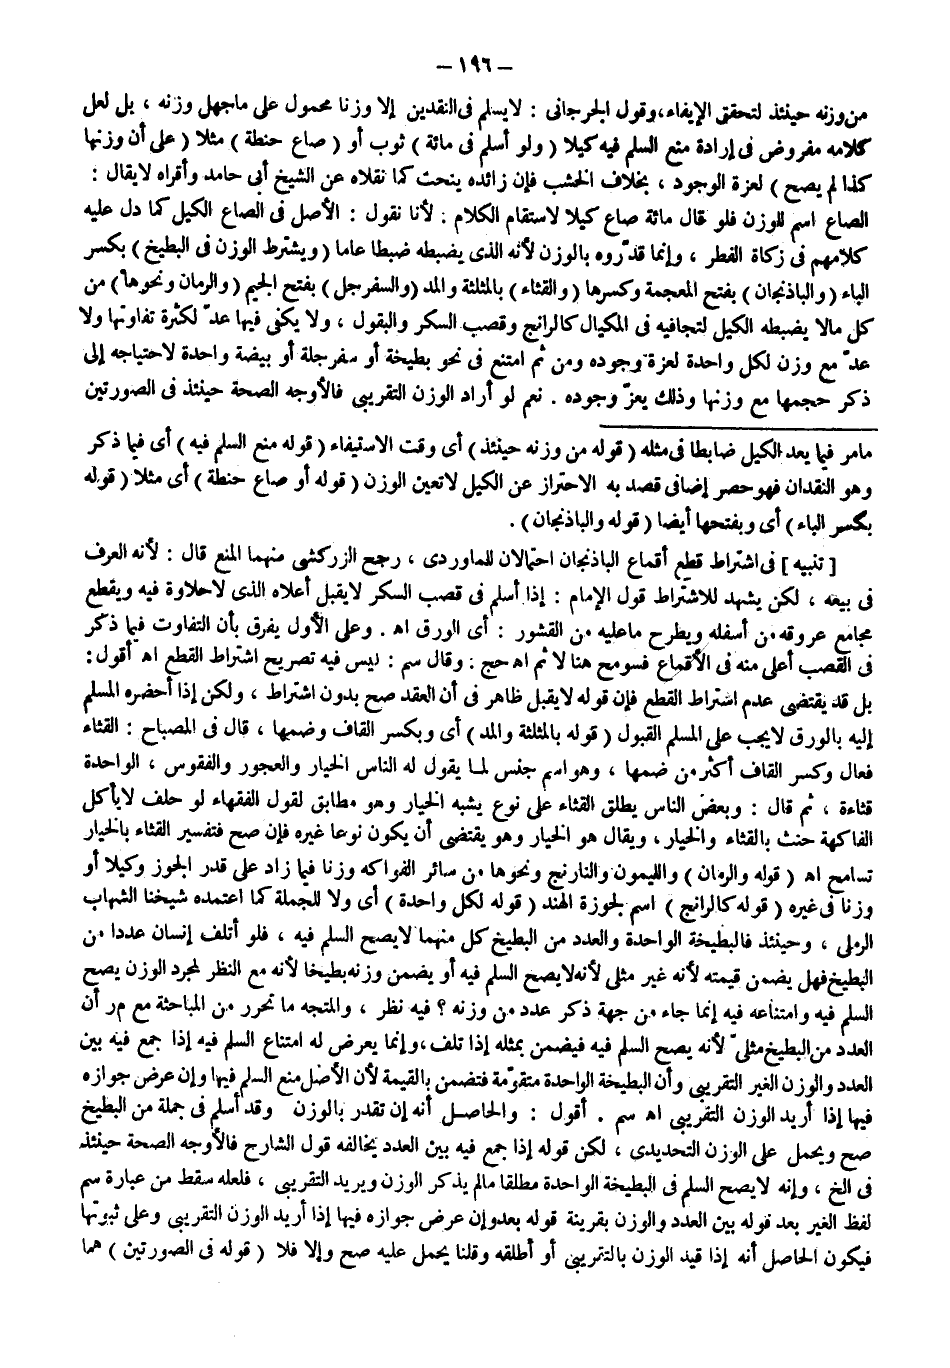 — ١٩٦ —
من وزنه حينئذ لتحقق الإيفاء، وقول الجرجانى : لايسلم فى النقدين إلا وزنا محمول على ماجهل وزنه ، بل لعل
كلامه مفروض فى إرادة منع السلم فيه كيلا ( ولو أسلم فى مائة ) ثوب أو ( صاع حنطة ) مثلا ( على أن وزنها
كذا لم يصح ) لعزة الوجود ، بخلاف الخشب فإن زائده ينحت كما نقلاه عن الشيخ أبى حامد وأقراه لايقال :
الصاع اسم للوزن فلو قال مائة صاع كيلا لاستقام الكلام . لأنا نقول : الأصل فى الصاع الكيل كما دل عليه
كلامهم فى زكاة الفطر ، وإنما قدّروه بالوزن لأنه الذى يضبطه ضبطا عاما ( ويشترط الوزن فى البطيخ ) بكسر
الباء ( والباذنجان ) بفتح المعجمة وكسرها ( والقثاء ) بالمثلثة والمد ( والسفرجل ) بفتح الجيم ( والرمان ونحوها ) من
كل مالا يضبطه الكيل لتجافيه فى المكيال كالرانج وقصب السكر والبقول ، ولا يكفى فيها عدّ لكثرة تفاوتها ولا
عدّ مع وزن لكل واحدة لعزة وجوده ومن ثم امتنع فى نحو بطيخة أو سفرجلة أو بيضة واحدة لاحتياجه إلى
ذكر حجمها مع وزنها وذلك يعزّ وجوده . نعم لو أراد الوزن التقريبى فالأوجه الصحة حينئذ فى الصورتين
مامر فيما يعد الكيل ضابطا فى مثله ( قوله من وزنه حينئذ ) أى وقت الاستيفاء ( قوله منع السلم فيه ) أى فيما ذكر
وهو النقدان فهو حصر إضافى قصد به الاحتراز عن الكيل لاتعين الوزن ( قوله أو صاع حنطة ) أى مثلا ( قوله
بكسر الباء ) أى وبفتحها أيضا ( قوله والباذنجان ) .
[ تنبيه ] فى اشتراط قطع أقماع الباذنجان احتمالان للماوردى ، رجح الزركشى منهما المنع قال : لأنه العرف
فى بيعه ، لكن يشهد للاشتراط قول الإمام : إذا أسلم فى قصب السكر لايقبل أعلاه الذى لاحلاوة فيه ويقطع
مجامع عروقه من أسفله ويطرح ماعليه من القشور : أى الورق اه . وعلى الأول يفرق بأن التفاوت فيما ذكر
فى القصب أعلى منه فى الأقماع فسومح هنا لا ثم اه حج . وقال سم : ليس فيه تصريح اشتراط القطع اه أقول :
بل قد يقتضى عدم اشتراط القطع فإن قوله لايقبل ظاهر فى أن العقد صح بدون اشتراط ، ولكن إذا أحضره المسلم
إليه بالورق لايجب على المسلم القبول ( قوله بالمثلثة والمد ) أى وبكسر القاف وضمها ، قال فى المصباح : القثاء
فعال وكسر القاف أكثر من ضمها ، وهو اسم جنس لما يقول له الناس الخيار والعجور والفقوس ، الواحدة
قثاءة ، ثم قال : وبعض الناس يطلق القثاء على نوع يشبه الخيار وهو مطابق لقول الفقهاء لو حلف لايأكل
الفاكهة حنث بالقثاء والخيار ، ويقال هو الخيار وهو يقتضى أن يكون نوعا غيره فإن صح فتفسير القثاء بالخيار
تسامح اه ( قوله والرمان ) والليمون والنارنج ونحوها من سائر الفواكه وزنا فيما زاد على قدر الجوز وكيلا أو
وزنا فى غيره ( قوله كالرانج ) اسم لجوزة الهند ( قوله لكل واحدة ) أى ولا للجملة كما اعتمده شيخنا الشهاب
الرملى ، وحينئذ فالبطيخة الواحدة والعدد من البطيخ كل منهما لايصح السلم فيه ، فلو أتلف إنسان عددا من
البطيخ فهل يضمن قيمته لأنه غير مثلى لأنه لايصح السلم فيه أو يضمن وزنه بطيخا لأنه مع النظر لمجرد الوزن يصح
السلم فيه وامتناعه فيه إنما جاء من جهة ذكر عدد من وزنه ؟ فيه نظر ، والمتجه ما تحرر من المباحثة مع مر أن
العدد من البطيخ مثلىّ لأنه يصح السلم فيه فيضمن بمثله إذا تلف ، وإنما يعرض له امتناع السلم فيه إذا جمع فيه بين
العدد والوزن الغير التقريبى وأن البطيخة الواحدة متقوّمة فتضمن بالقيمة لأن الأصل منع السلم فيها وإن عرض جوازه
فيها إذا أريد الوزن التقريبى اه سم . أقول : والحاصل أنه إن تقدر بالوزن وقد أسلم فى جملة من البطيخ
صح ويحمل على الوزن التحديدى ، لكن قوله إذا جمع فيه بين العدد يخالفه قول الشارح فالأوجه الصحة حينئذ
فى الخ ، وإنه لايصح السلم فى البطيخة الواحدة مطلقا مالم يذكر الوزن ويريد التقريبى ، فلعله سقط من عبارة سم
لفظ الغير بعد قوله بين العدد والوزن بقرينة قوله بعد وإن عرض جوازه فيها إذا أريد الوزن التقريبى وعلى ثبوتها
فيكون الحاصل أنه إذا قيد الوزن بالتقريبى أو أطلقه وقلنا يحمل عليه صح وإلا فلا ( قوله فى الصورتين ) هما